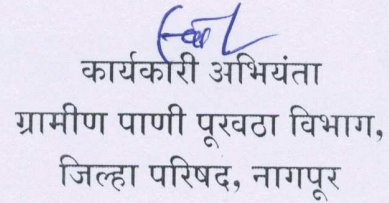 कार्यकारी अभियंता
ग्रामीण पाणी पूरवठा विभाग,
जिल्हा परिषद, नागपूर